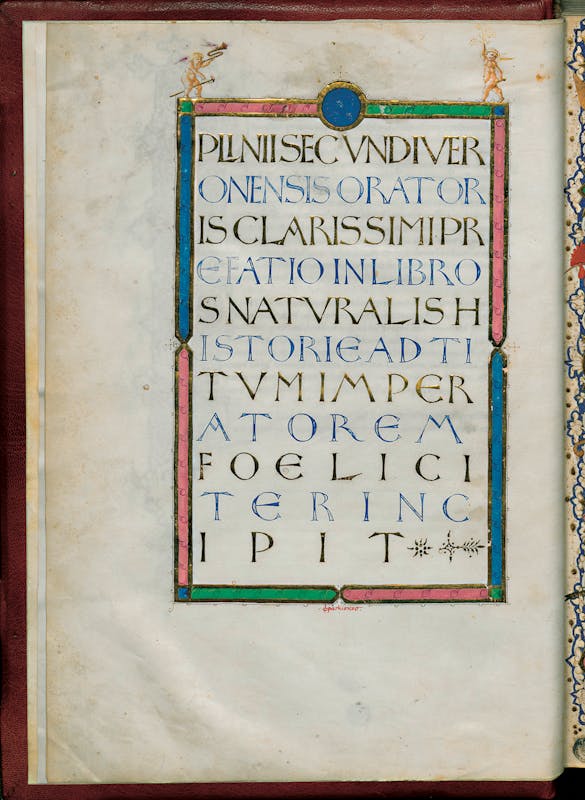 PLINII SECVNDI VER
ONENSIS ORATOR
IS CLARISSIMI PR
EFATIO IN LIBRO
S NATVRALIS H
ISTORIE AD TI
TVM IMPER
ATOREM
FOELICI
TER INC
IPIT